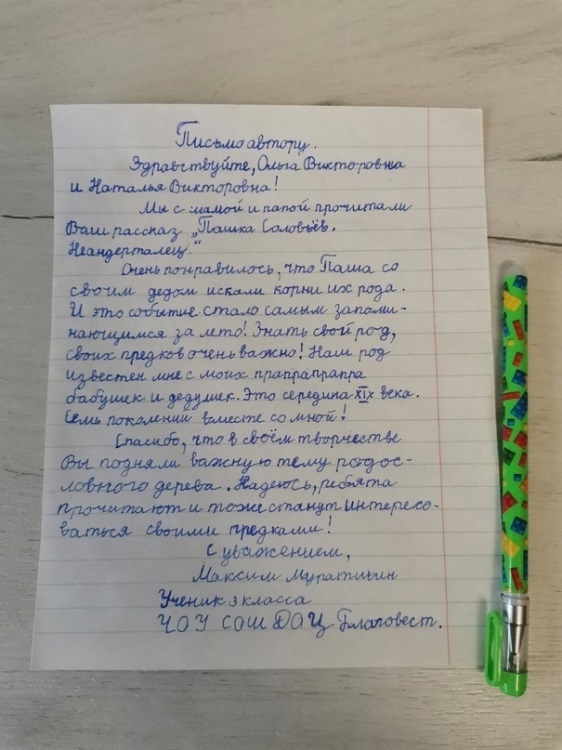 Письмо автору.
Здравствуйте, Ольга Викторовна
и Наталья Викторовна!
Мы с мамой и папой прочитали
Ваш рассказ „Пашка Соловьёв.
Неандерталец."
Очень понравилось, что Паша со
своим дедом искали корни их рода.
И это событие стало самым запоми-
нающимся за лето! Знать свой род,
своих предков очень важно! Наш род
известен мне с моих прапрапрапра
бабушек и дедушек. Это середина XIX века.
Семь поколений вместе со мной!
Спасибо, что в своём творчестве
Вы подняли важную тему родос-
ловного дерева. Надеюсь, ребята
прочитают и тоже станут интересо-
ваться своими предками!
С уважением,
Максим
Ученик 3 класса
ЧОУ СОШ ДОЦ Благовест.